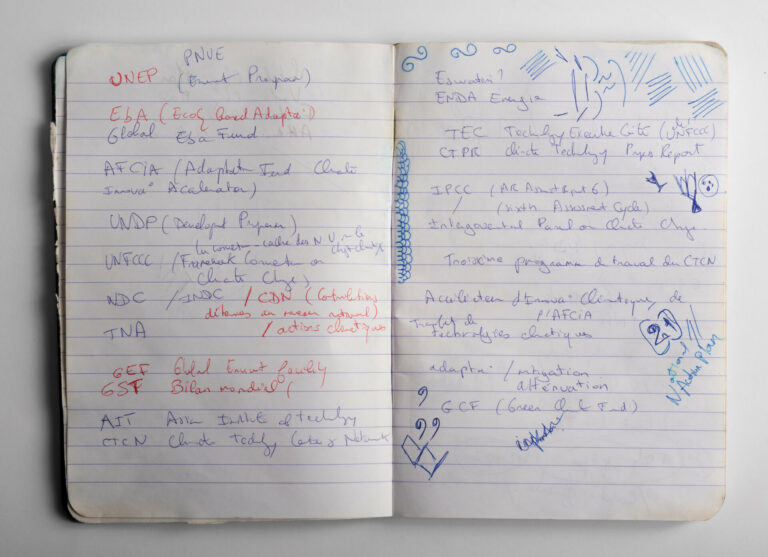 PNUE
UNEP (Enment Program)
EbA (EcoS based Adapta°)
Global Eba Fund
AFCIA (Adaptation Fund Climate
Innova° Accelerator)
UNDP (Developmt Programm)
la convent°-cadre des N.U. le
UNFCCC /Framework Convention on
Climate Change)
NDC /INDC /CDN (Contributions
détermées au niveau national)
TNA /actions climatiques
GEF Global Enment Facility
GSF Bilan mondial (
AIT Asian Institute of Technlgy
CTCN Climate Technlgy Center & Network
Eswatini?
ENDA Energie
TEC Technlgy Executive Cmtte (UNFCCC)
CTPR Climate Technlgy Prgrss Report
IPCC (AR Assmt Rprt 6)
/ (sixth Assessmt Cycle)
Intergovmental Panel on Climate Change
Troisième programme de travail du CTCN
Accélération d'Innova° Climatique de
l'AFCIA
Transfert de
technologies climatiques
21
National
Action Plan
adapta° /mitigation
attenuation
GCF (Green Climate Fund)